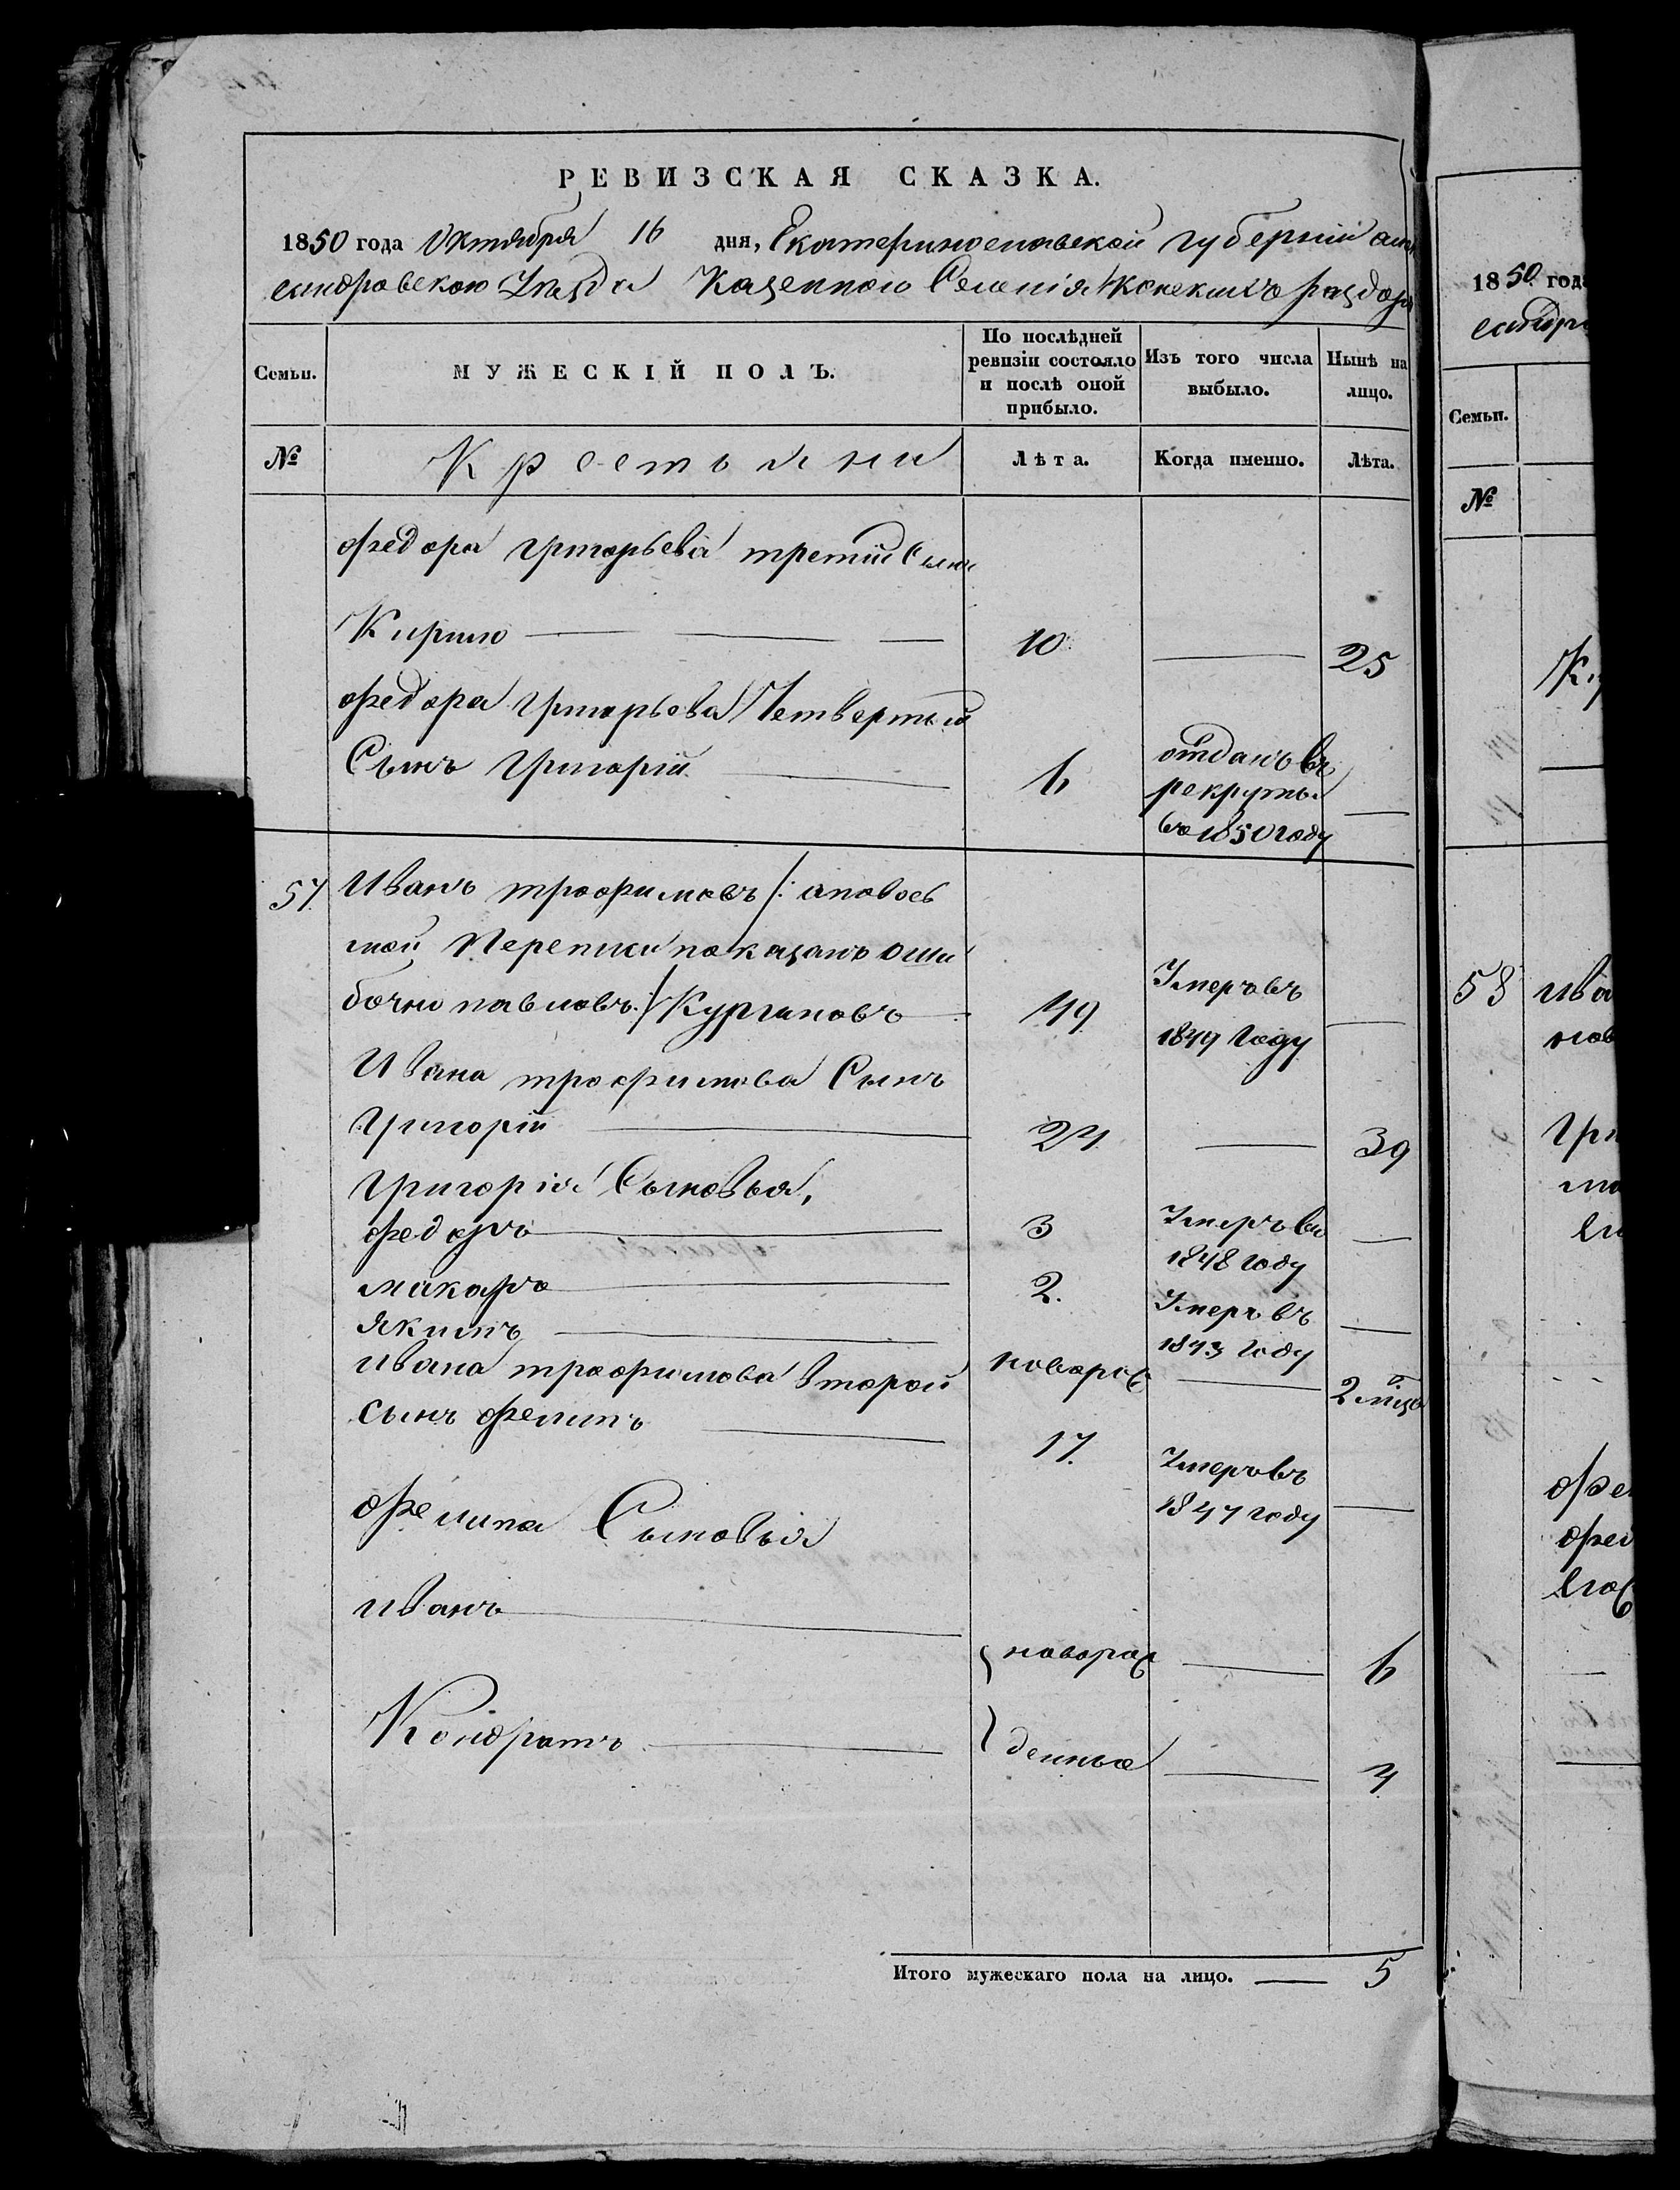 РЕВИЗСКАЯ СКАЗКА.
1850 года Октября 16 дня, Екатеринославской губернии Алек
сандровского Уезда Казенного Селенія Конскихъ раздоръ
Семьи. МУЖЕСКІЙ ПОЛЪ. По послѣдней ревизіи состояло и послѣ оной прибыло. Изъ того числа выбыло. Нынѣ на лицо.
№ Крестьяни Лѣта. Когда именно. Лѣта.
Федора Григорьева третій Сынъ
Кирило 10 — 25
Федора Григорьева Четвертый
Сынъ Григорій 6 отданъ въ рекруты въ 1850 году —
57. Иванъ трофимовъ /: а по вось
мой Переписи показанъ оши
бочно павловъ :/ Кургановъ 49 Умеръ въ 1849 году —
Ивана трофимова Сынъ
Григорій 24 — 39
Григорія Сыновья,
федоръ 3 Умеръ въ 1848 году —
макаръ 2. Умеръ въ 1843 году —
якимъ новорож — 2 мѣця
ивана трофимова второй
сынъ филипъ 17. Умеръ въ 1847 году —
филипа Сыновья
иванъ } новорож — 6
Кондратъ } денные — 4
Итого мужескаго пола на лицо. — 5
1850 год
Семьи.
№
58 ива